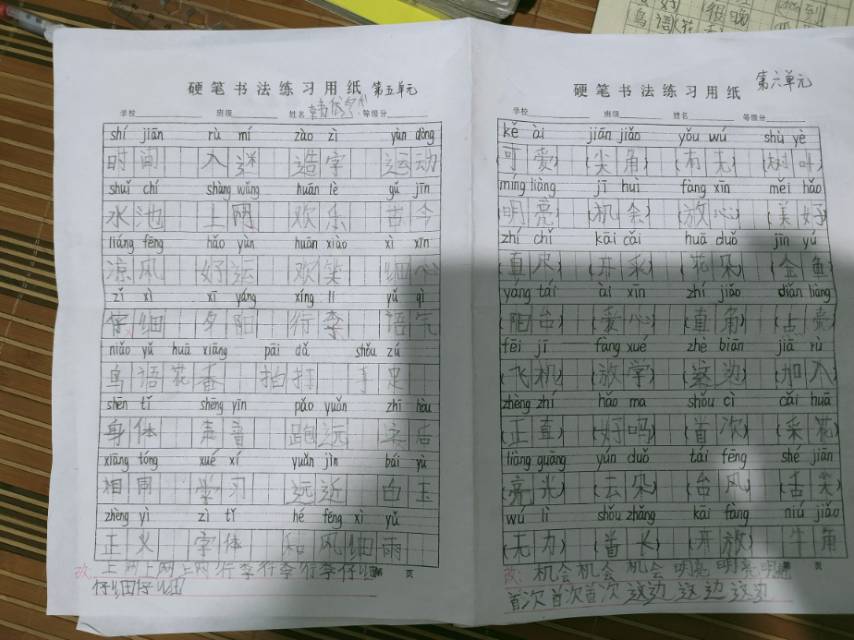 硬笔书法练习用纸 第五单元
学校 班级 姓名 等级分
shí jiān rù mí zào zì yùn dòng
时间 入迷 造字 运动
shuǐ chí shàng wǎng huān lè gǔ jīn
水池 上网 欢乐 古今
liáng fēng hǎo yùn huān xiào xì xīn
凉风 好运 欢笑 细心
zǐ xì xī yáng xíng li yǔ qì
仔细 夕阳 行李 语气
niǎo yǔ huā xiāng pāi dǎ shǒu zú
鸟语花香 拍打 手足
shēn tǐ shēng yīn pǎo yuǎn zhī hòu
身体 声音 跑远 之后
xiāng tóng xué xí yuǎn jìn bái yù
相同 学习 远近 白玉
zhèng yì zì tǐ hé fēng xì yǔ
正义 字体 和风细雨
改: 上网上网上网行李行李行李仔细
仔细仔细
硬笔书法练习用纸 第六单元
学校 班级 姓名 等级分
kě ài jiān jiǎo yǒu wú shù yè
可爱 尖角 有无 树叶
míng liàng jī huì fàng xīn měi hǎo
明亮 机会 放心 美好
zhí chǐ kāi cǎi huā duǒ jīn yú
直尺 开采 花朵 金鱼
yáng tái ài xīn zhí jiǎo diǎn liàng
阳台 爱心 直角 点亮
fēi jī fàng xué zhè biān jiā rù
飞机 放学 这边 加入
zhèng zhí hǎo ma shǒu cì cǎi huā
正直 好吗 首次 采花
liàng guāng yún duǒ tái fēng shé jiān
亮光 云朵 台风 舌尖
wú lì shǒu zhǎng kāi fàng niú jiǎo
无力 首长 开放 牛角
改: 机会机会 机会 明亮明亮明亮
首次首次首次 这边这边这边